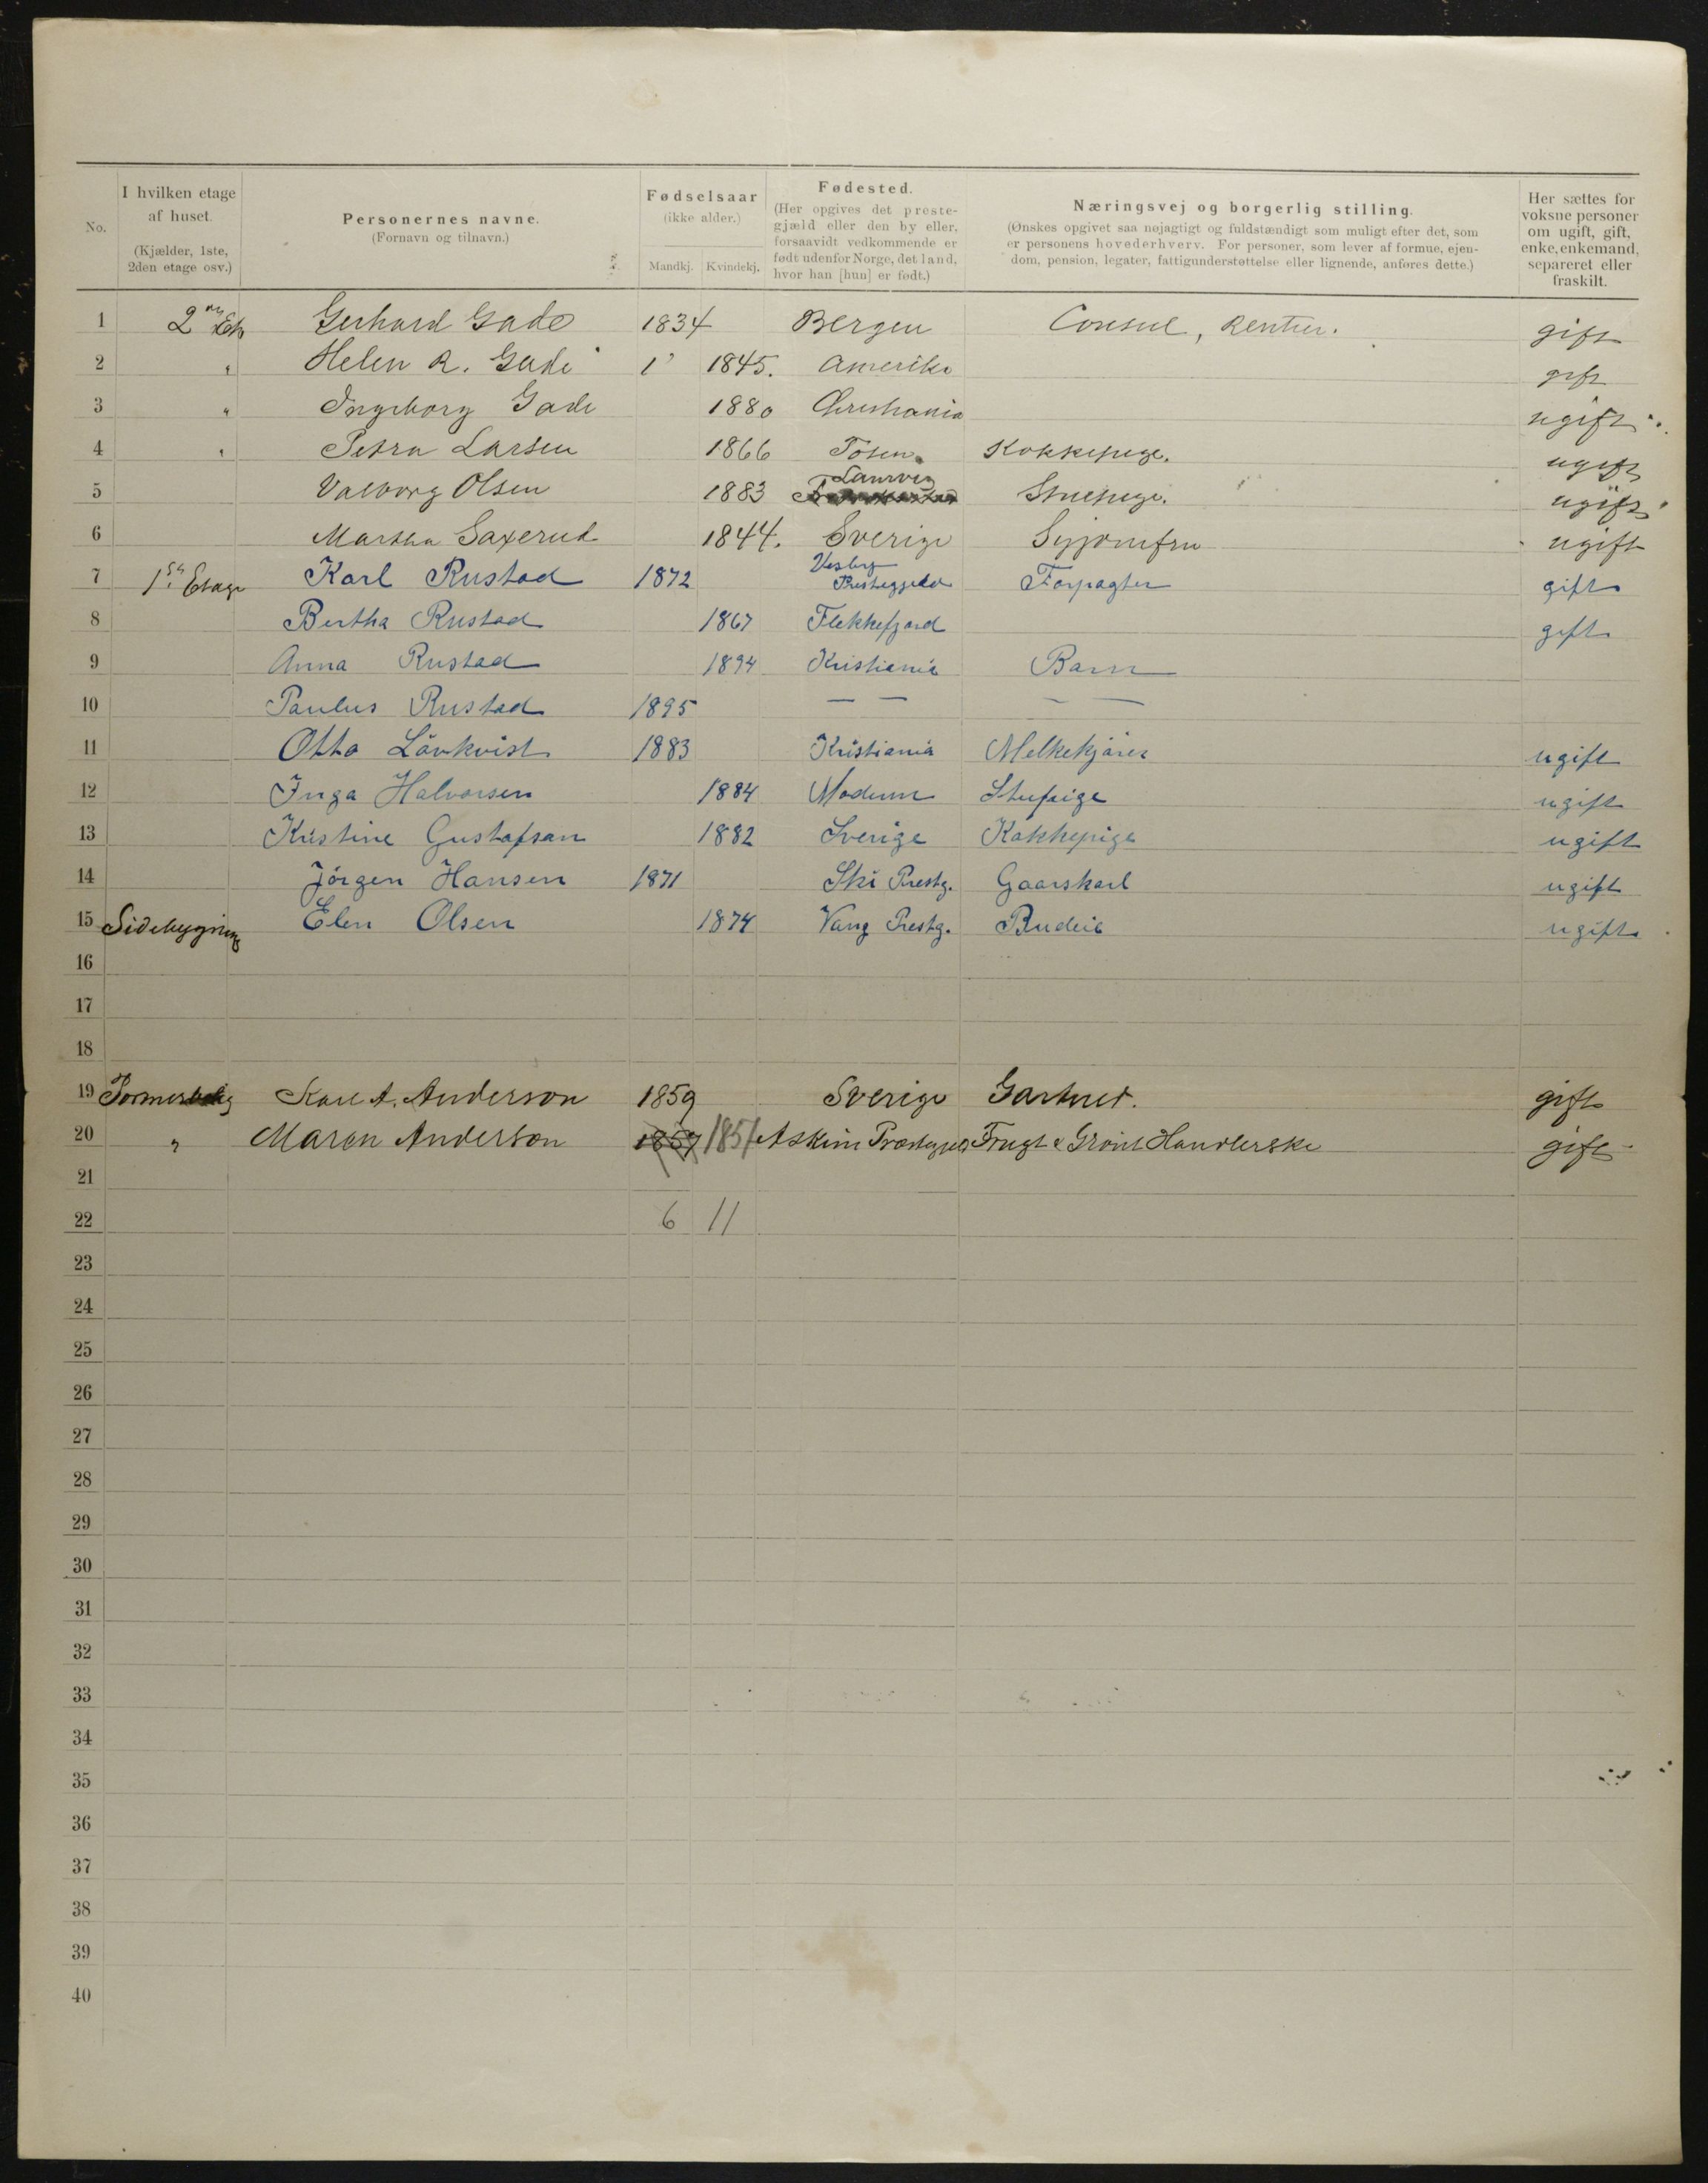 No.
I hvilken etage af huset.
(Kjælder, 1ste, 2den etage osv.)
Personernes navne.
(Fornavn og tilnavn.)
Fødselsaar
(ikke alder.)
Mandkj. Kvindekj.
Fødested.
(Her opgives det præstegjæld eller den by eller, forsaavidt vedkommende er født udenfor Norge, det land, hvor han [hun] er født.)
Næringsvej og borgerlig stilling.
(Ønskes opgivet saa nøjagtigt og fuldstændigt som muligt efter det, som er personens hovederhverv. For personer, som lever af formue, ejendom, pension, legater, fattigunderstøttelse eller lignende, anføres dette.)
Her sættes for voksne personer om ugift, gift, enke, enkemand, separeret eller fraskilt.
1 Gerhard Gade 1834 Bergen Consul, Rentier. gift
2 " Helen R. Gade 1845. Amerika gift
3 " Ingeborg Gade 1880 Christiania ugift
4 " Petra Larsen 1866 Kokkepige. ugift
5 Valborg Olsen 1883 Laurvig Stuepige. ugift
6 Martha Saxerud 1844. Sverige Syjomfru ugift
7 1ste Etage Karl Rustad 1872 Vesby Prestegjeld Forpagter gift
8 Bertha Rustad 1867 Flekkefjord gift
9 Anna Rustad 1894 Kristiania Barn
10 Paulus Rustad 1895 — — — —
11 Otto Lövkvist 1883 Kristiania Melkekjører ugift
12 Inga Halvorsen 1884 Modum Stupige ugift
13 Kristine Gustafsan 1882 Sverige Kokkepige ugift
14 Jörgen Hansen 1871 Ski Prestg. Gaarskarl ugift
15 Sidebygning Elen Olsen 1874 Vang Prestg. Budeie ugift
16
17
18
19 Karl A. Anderson 1859 Sverige Gartner. gift
20 " Maren Anderson 1857 1857 Askim Præstegjeld Frugt & Grønt Handlerske gift
21
22 6 11
23
24
25
26
27
28
29
30
31
32
33
34
35
36
37
38
39
40